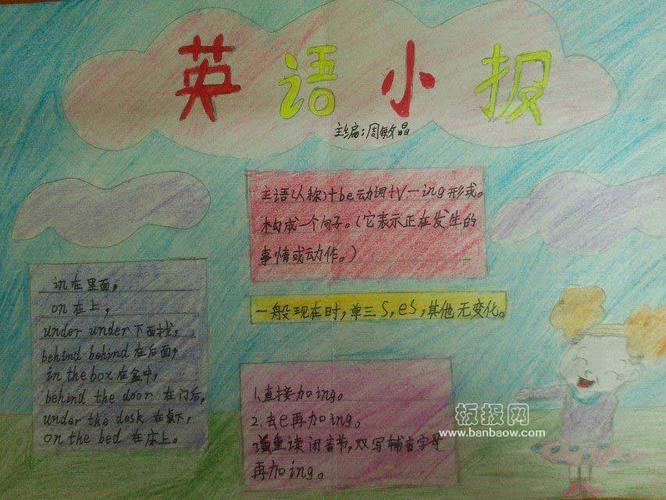 英语小报
主编:周敏晶
主语(人称)+be动词+V-ing形式。
构成一个句子。(它表示正在发生的
事情或动作。)
in在里面,
on在上,
under under下面找,
behind behind在后面,
in the box在盒中,
behind the door在门后,
under the desk在桌下,
on the bed在床上。
一般现在时,单三S,es,其他无变化。
1.直接加ing。
2.去e再加ing。
重读闭音节,双写辅音字母
再加ing。
板报网
www.banbaow.com